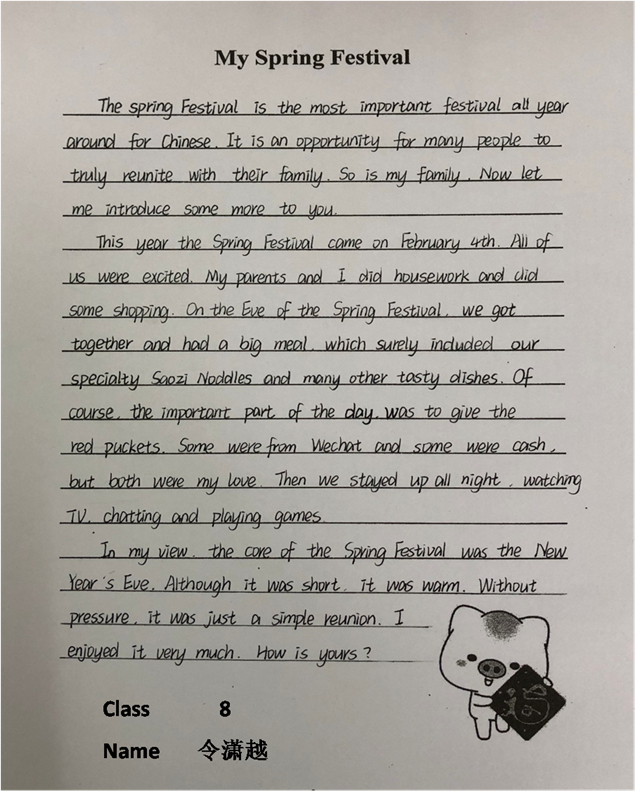 My Spring Festival
The spring Festival is the most important festival all year
around for Chinese. It is an opportunity for many people to
truly reunite with their family. So is my family. Now let
me introduce some more to you.
This year the Spring Festival came on February 4th. All of
us were excited. My parents and I did housework and did
some shopping. On the Eve of the Spring Festival, we got
together and had a big meal, which surely included our
specialty Saozi Noddles and many other tasty dishes. Of
course, the important part of the day, was to give the
red puckets. Some were from Wechat and some were cash,
but both were my love. Then we stayed up all night, watching
TV, chatting and playing games.
In my view, the core of the Spring Festival was the New
Year's Eve. Although it was short, it was warm. Without
pressure, it was just a simple reunion. I
enjoyed it very much. How is yours?
Class 8
Name 令潇越